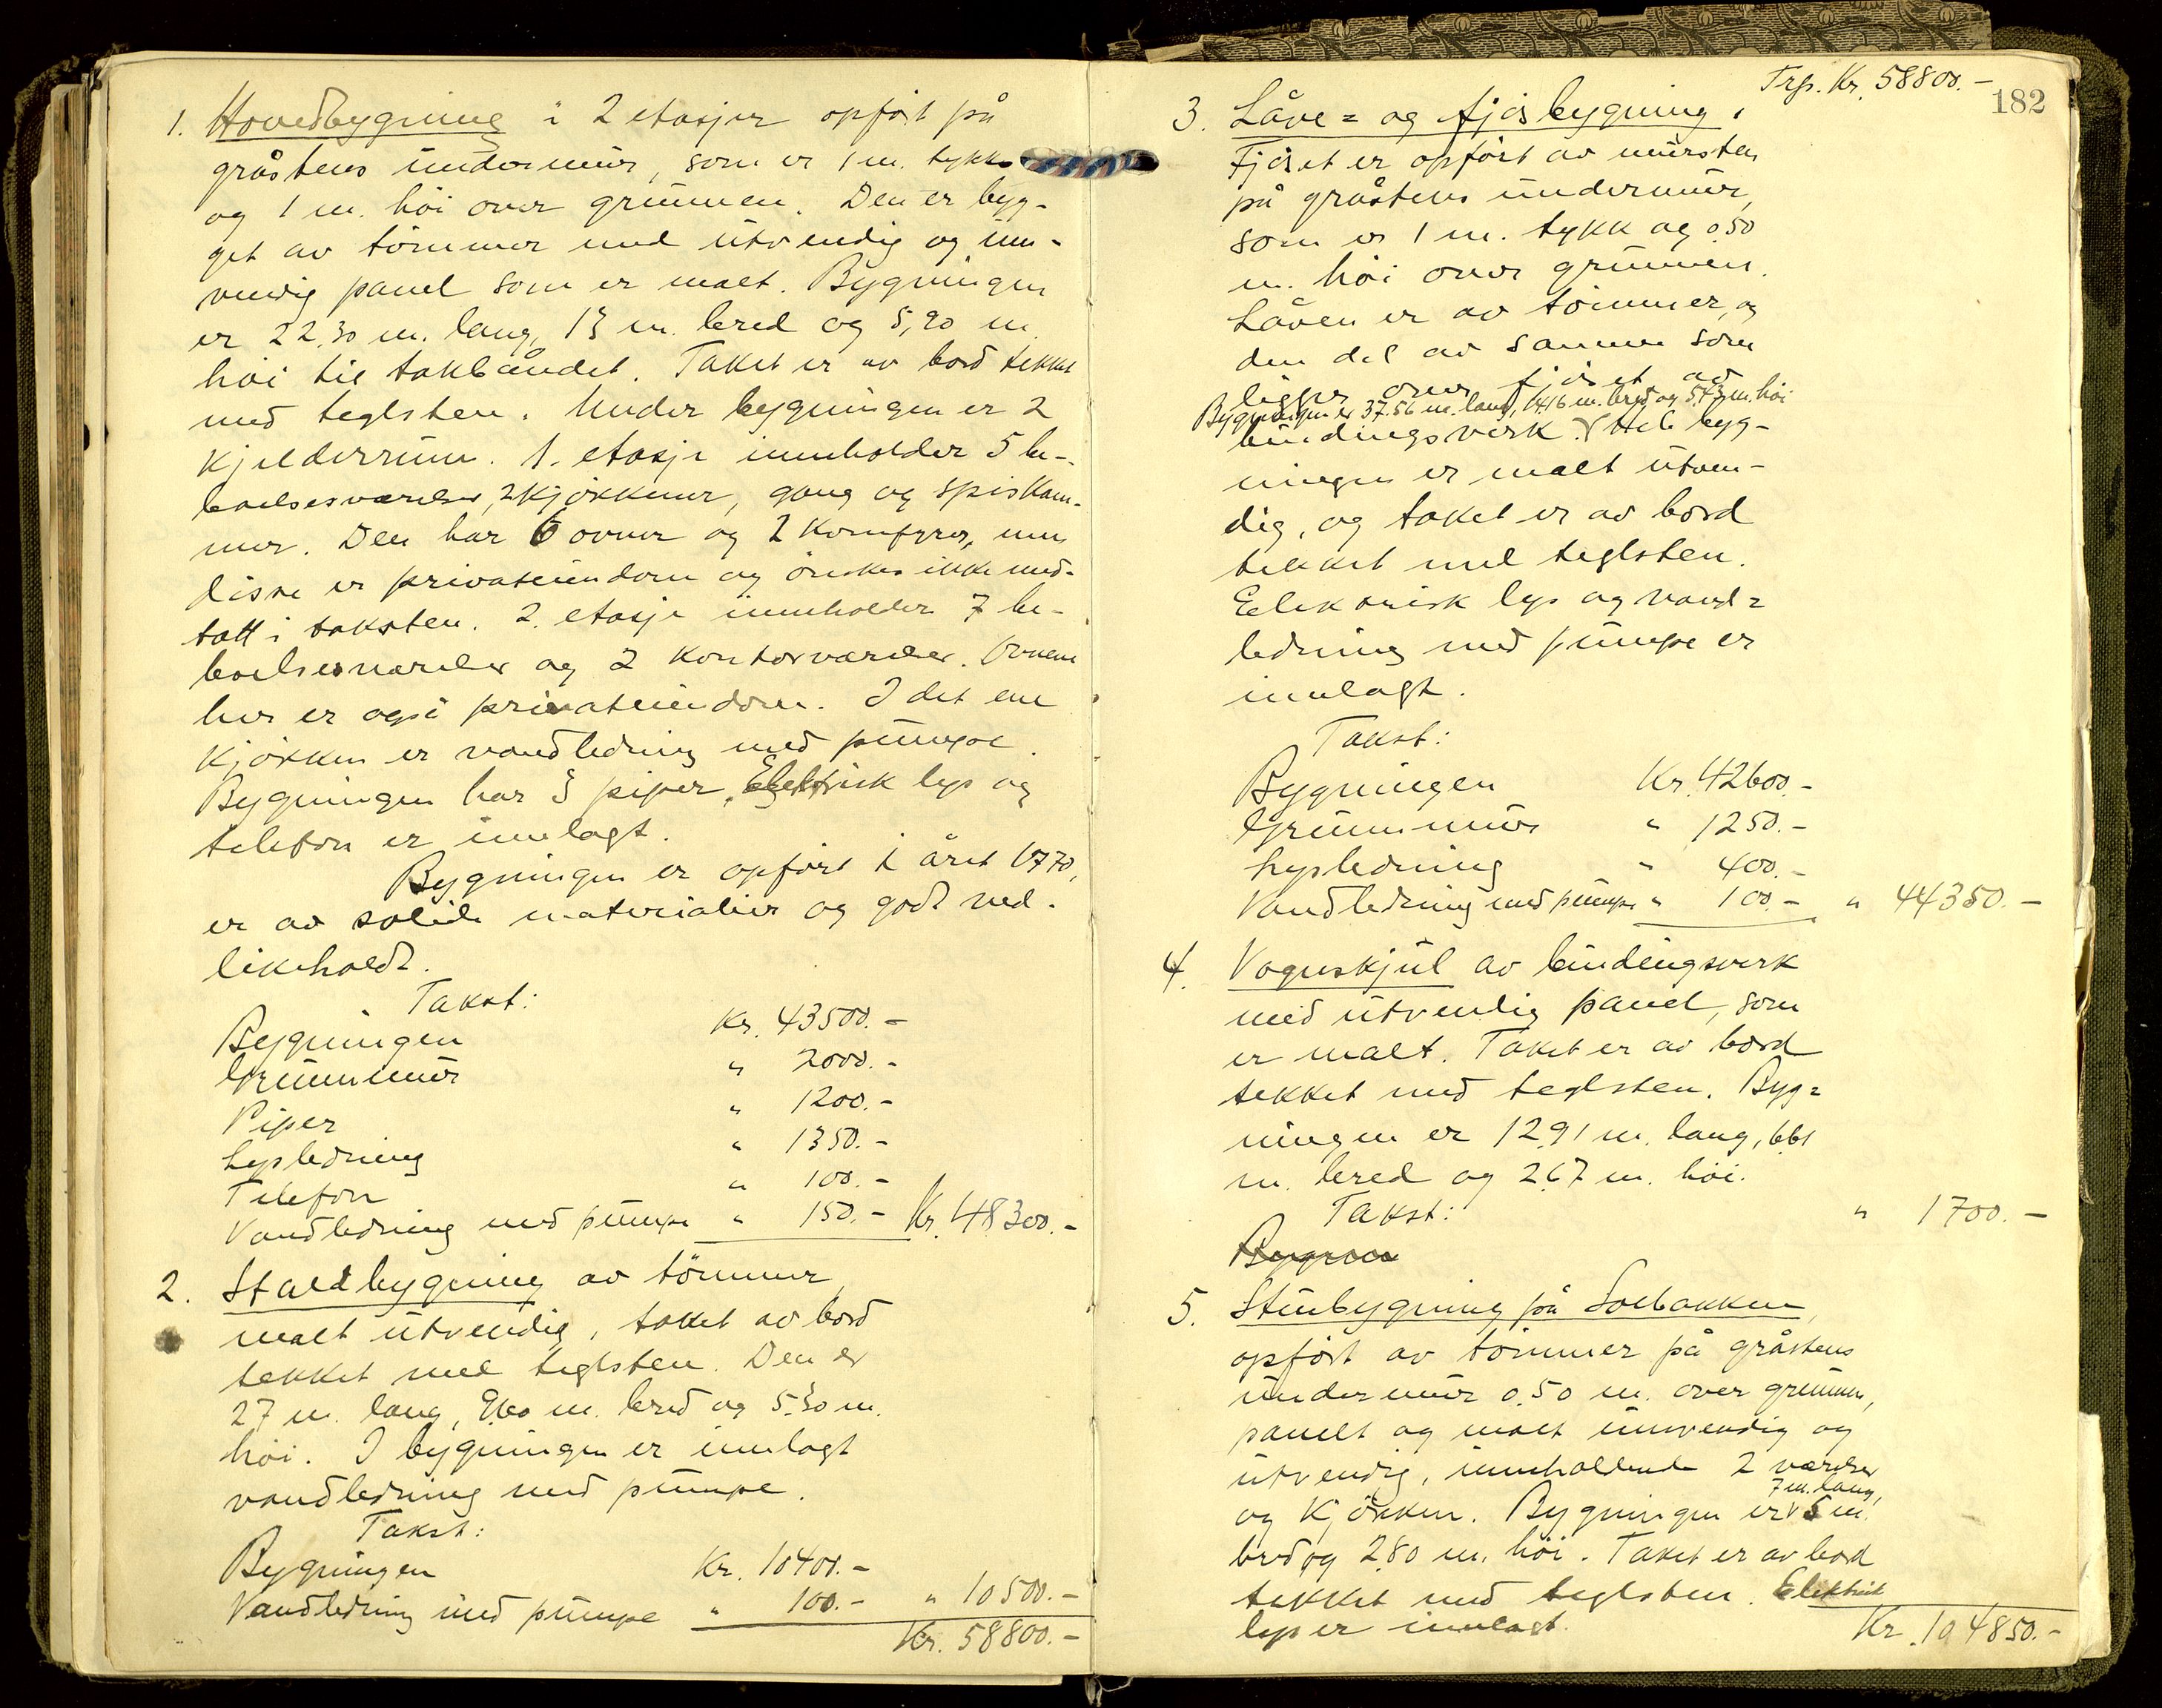 1. Hovedbygning i 2 etasjer opført på
gråstens undermur, som er 1 m. tykk
og 1 m. høi over grunnen. Den er byg-
get av tømmer med utvendig og inn-
vendig panel som er malt. Bygningen
er 22,30 m. lang, 13 m. bred og 5,90 m
høi til takbåndet. Taket er av bord tekket
med teglsten. Under bygningen er 2
kjelderrum. 1. etasje inneholder 5 be-
boelsesværelser, 2 kjøkkener, gang og spiskam-
mer. Den har 6 ovner og 2 komfyrer, men
disse er privateiendom og ønskes ikke med-
tatt i taksten. 2. etasje inneholder 7 be-
boelsesværelser og 2 kontorværelser. Ovnene
her er også privateiendom. I det ene
kjøkken er vandledning med pumpe.
Bygningen har 3 piper. Elektrisk lys og
telefon er innlagt.
Bygningen er opført i året 1770,
er av solide materialier og godt ved-
likeholdt.
Takst:
Bygningen Kr. 43500.-
Grunnmur " 2000.-
Piper " 1200.-
Lysledning " 1350.-
Telefon " 100.-
Vandledning med pumpe " 150.- Kr. 48300.-
2. Staldbygning av tømmer,
malt utvendig, taket av bord
tekket med teglsten. Den er
27 m. lang, 9,60 m. bred og 5.30 m.
høi. I bygningen er innlagt
vandledning med pumpe.
Takst:
Bygningen Kr. 10400.-
Vandledning med pumpe " 100.- " 10500.-
Kr. 58800.-
Trp. Kr. 58800.-
182
3. Låve= og fjøsbygning.
Fjøset er opført av mursten
på gråstens undermur,
som er 1 m. tykk og 0.50
m. høi over grunnen.
Låven er av tømmer, og
den del av samme som
ligger over fjøset av
Bygningen er 37.56 m. lang, 14.16 m. bred og 5.73 m. høi
bindingsverk. Hele byg-
ningen er malt utven-
dig, og taket er av bord
tekket med teglsten.
Elektrisk lys og vand=
ledning med pumpe er
innlagt.
Takst:
Bygningen Kr. 42600.-
Grunnmur " 1250.-
Lysledning " 400.-
Vandledning med pumpe " 100.- " 44350.-
4. Vognskjul av bindingsverk
med utvendig panel, som
er malt. Taket er av bord
tekket med teglsten. Byg=
ningen er 12,91 m. lang, 6,61
m. bred og 2.67 m. høi.
Takst: " 1700.-
5. Stubygning på Solbakken,
opført av tømmer på gråstens
undermur 0.50 m. over grunnen,
panelt og malt innvendig og
utvendig, inneholdende 2 værelser
7 m. lang,
og kjøkken. Bygningen er 5 m.
bred og 2.80 m. høi. Taket er av bord
tekket med teglsten. Elektrisk
lys er innlagt. Kr. 104850.-